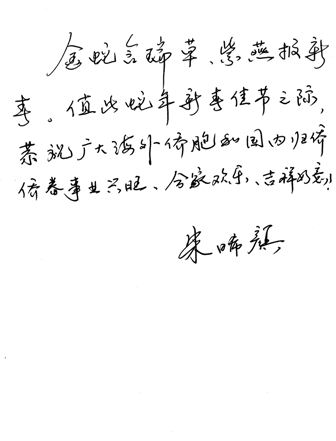 金蛇含瑞草、紫燕报新
春。值此蛇年新春佳节之际,
恭祝广大海外侨胞和国内归侨
侨眷事业兴旺、合家欢乐、吉祥如意!
朱晞颜